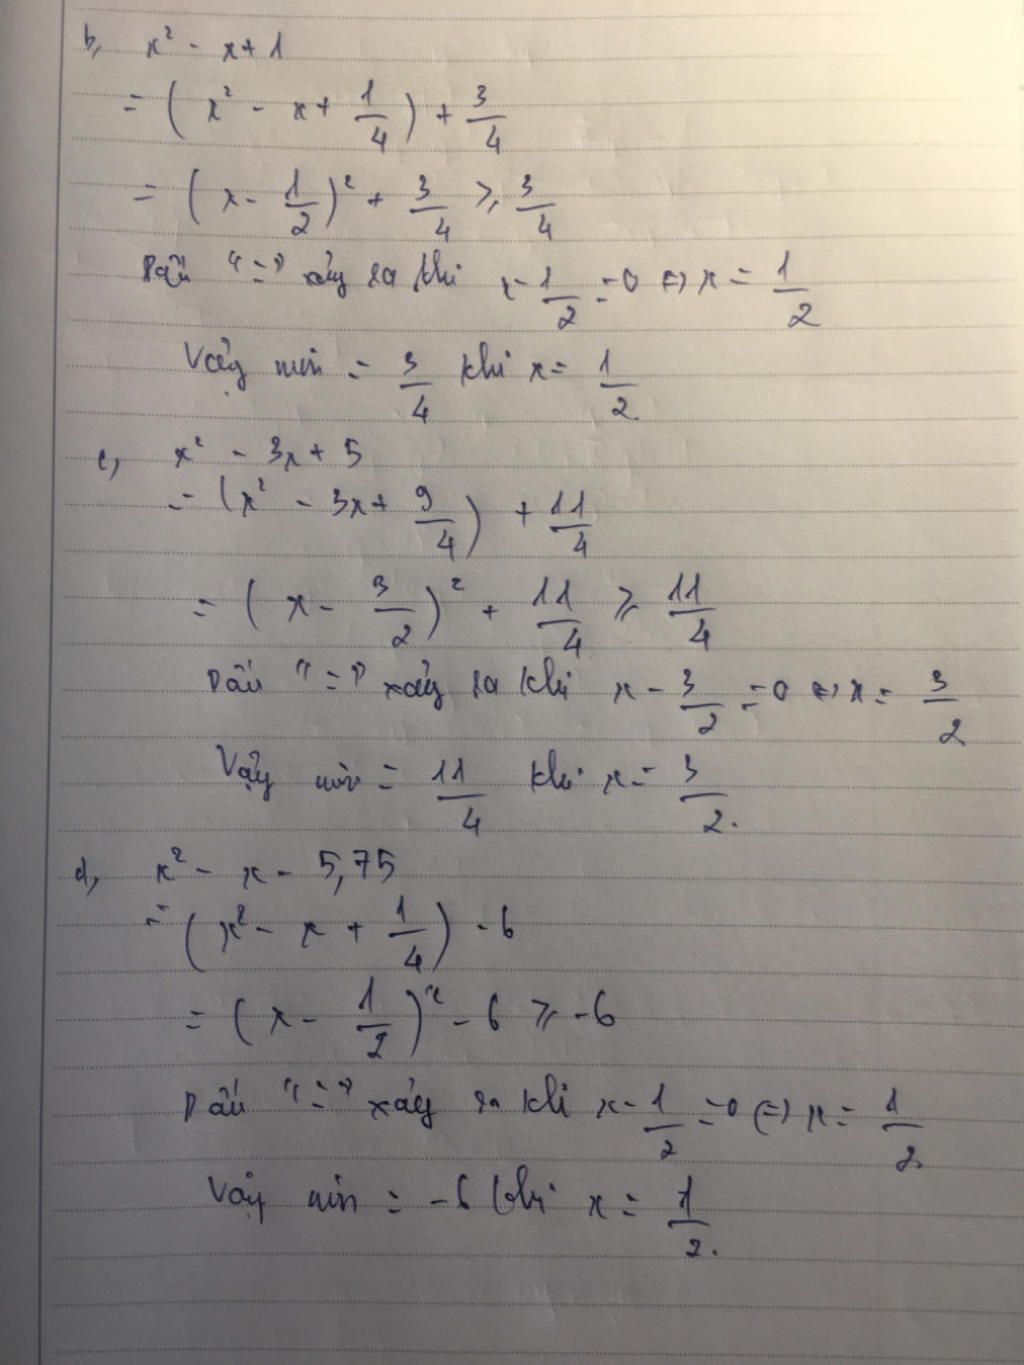 b, x² - x + 1
= (x² - x + 1/4) + 3/4
= (x - 1/2)² + 3/4 ⩾ 3/4
Dấu "=" xảy ra khi x - 1/2 = 0 ⇔ x = 1/2
Vậy min = 3/4 khi x = 1/2
c, x² - 3x + 5
= (x² - 3x + 9/4) + 11/4
= (x - 3/2)² + 11/4 ⩾ 11/4
Dấu "=" xảy ra khi x - 3/2 = 0 ⇔ x = 3/2
Vậy min = 11/4 khi x = 3/2.
d, x² - x - 5,75
= (x² - x + 1/4) - 6
= (x - 1/2)² - 6 ⩾ -6
Dấu "=" xảy ra khi x - 1/2 = 0 ⇔ x = 1/2
Vậy min = -6 khi x = 1/2.